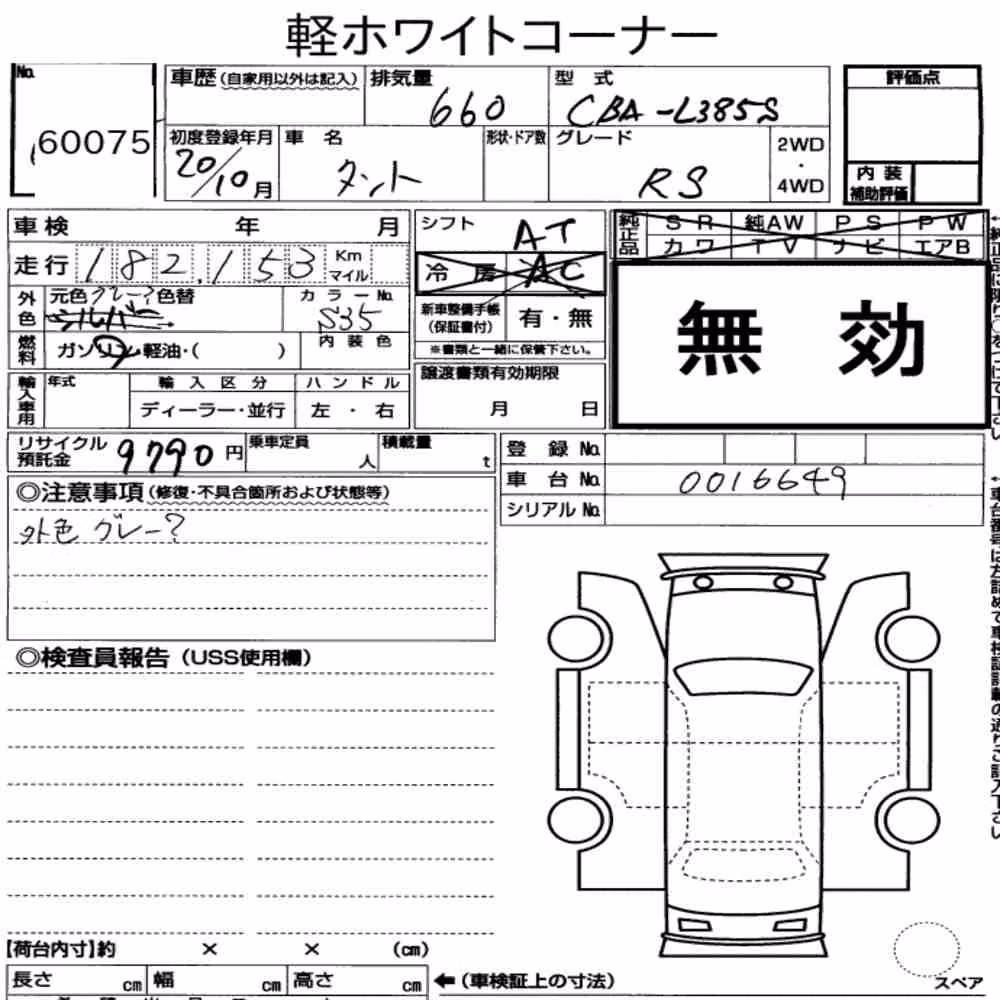 軽ホワイトコーナー
No.
60075
車歴(自家用以外は記入)
排気量
660
型 式
CBA-L385S
評価点
初度登録年月
20/10月
車 名
タント
形状・ドア数
グレード
RS
2WD
・
4WD
内 装
補助評価
車検 年 月
走行 182,153 Km
マイル
外色
元色 グレー? 色替
シルバー
カラーNo.
S35
内装色
燃料
ガソリン・軽油・( )
輸入車用
年式
輸入区分
ディーラー・並行
ハンドル
左・右
シフト
AT
冷 房 AC
新車整備手帳
(保証書付)
有・無
※書類と一緒に保管下さい。
譲渡書類有効期限
月 日
純正品
SR 純AW PS PW
カワ TV ナビ エアB
無 効
リサイクル
預託金
9790円
乗車定員
人
積載量
t
登 録 No.
車 台 No. 0016649
シリアル No.
◎注意事項(修復・不具合箇所および状態等)
外色 グレー?
◎検査員報告(USS使用欄)
【荷台内寸】約 × × (cm)
長さ cm 幅 cm 高さ cm
←(車検証上の寸法)
スペア